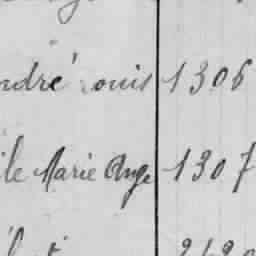 ndré ouis 1306
ile Marie Ange 1307